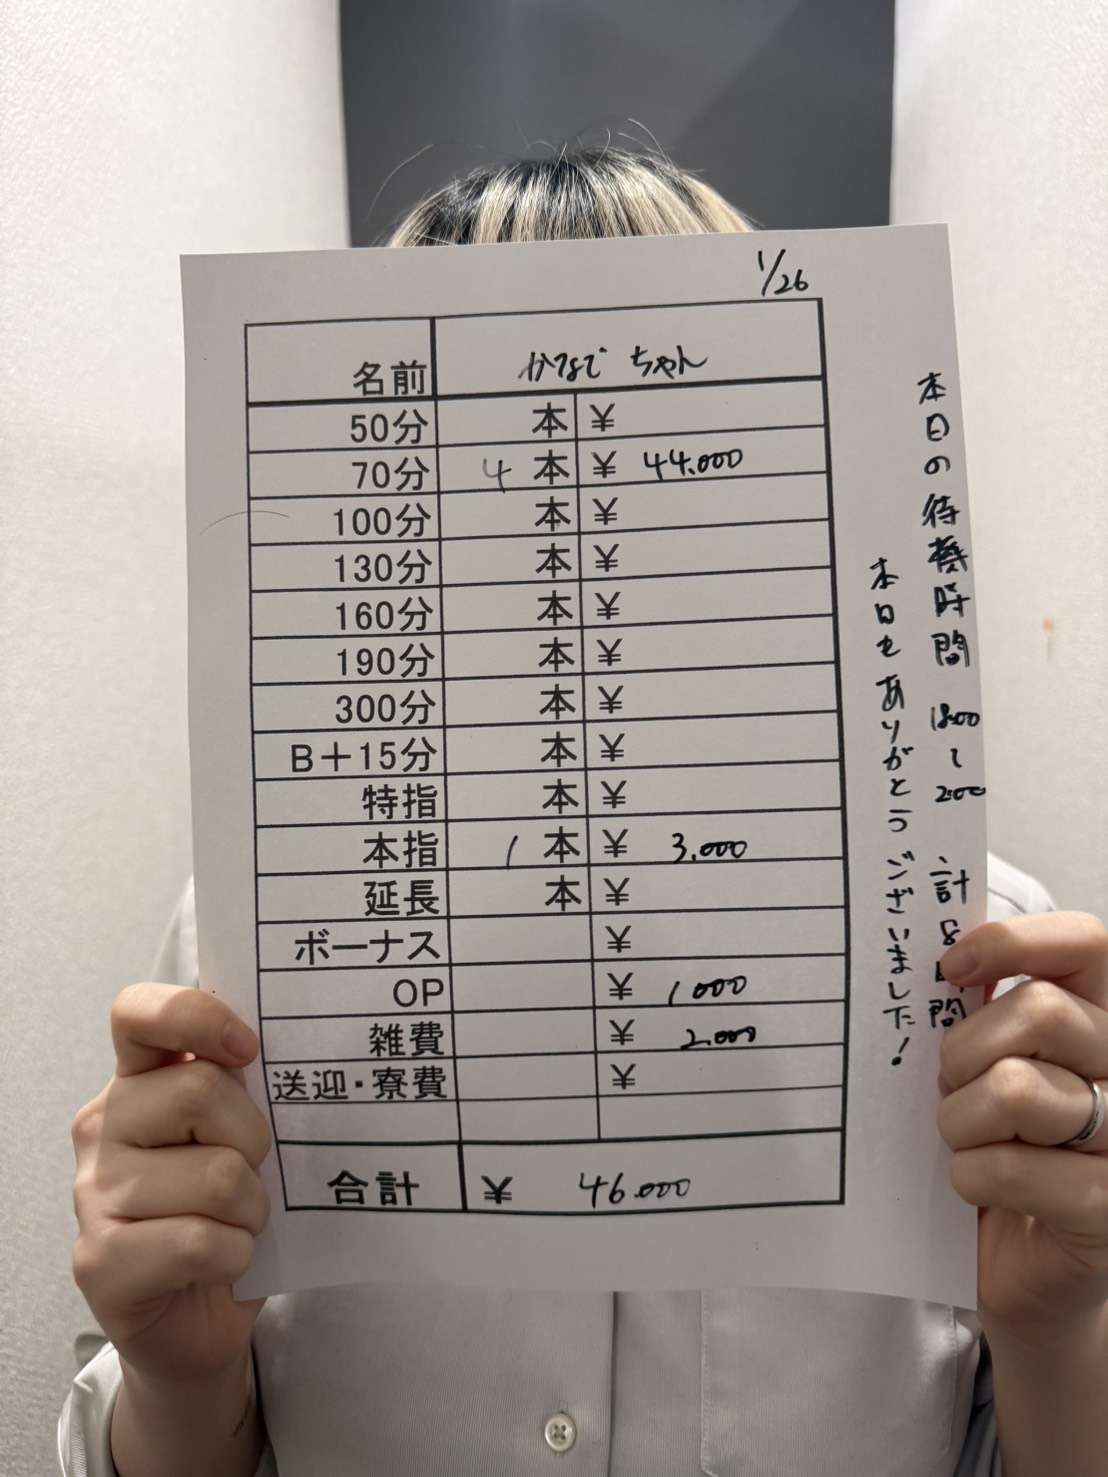 1/26
名前 かなで ちゃん
50分 本 ¥
70分 4 本 ¥ 44.000
100分 本 ¥
130分 本 ¥
160分 本 ¥
190分 本 ¥
300分 本 ¥
B+15分 本 ¥
特指 本 ¥
本指 1 本 ¥ 3.000
延長 本 ¥
ボーナス ¥
OP ¥ 1000
雑費 ¥ 2.000
送迎・寮費 ¥
合計 ¥ 46.000
本日の待機時間 18:00〜2:00 計8時間
本日もありがとうございました!